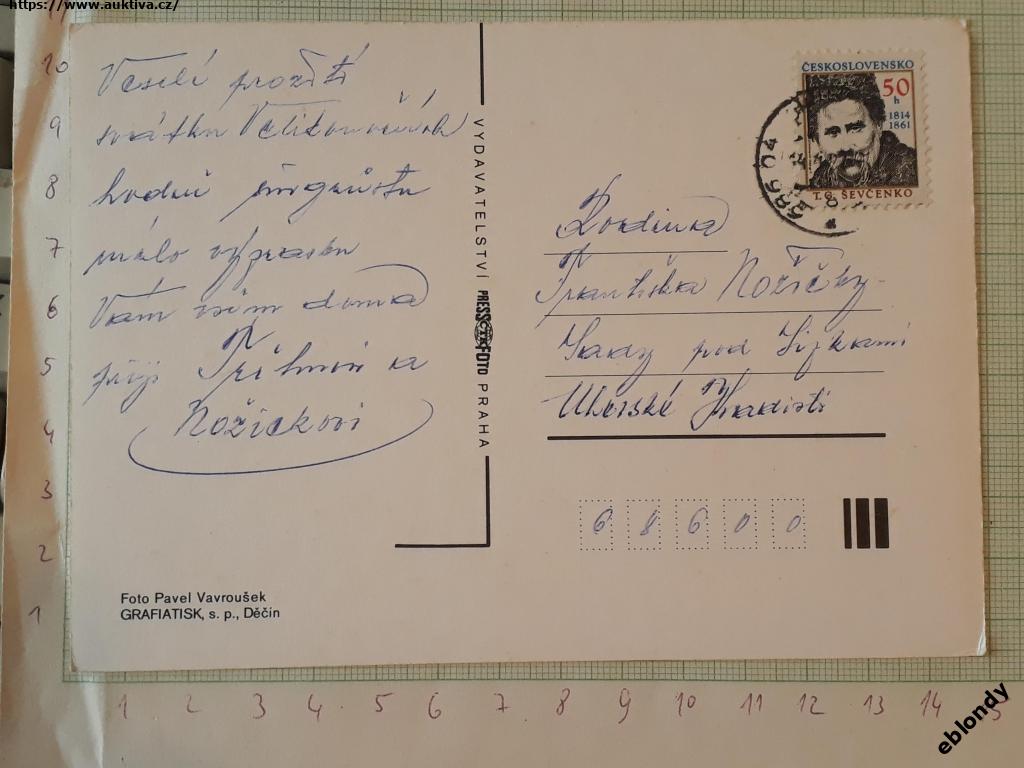 https://www.auktiva.cz/
Veselé prožití
svátků Velikonočních
hodně
málo výprasku
Vám všem doma
přejí a
Nožičkovi
VYDAVATELSTVÍ PRESSFOTO PRAHA
ČESKOSLOVENSKO
50
h
1814
1861
T. G. ŠEVČENKO
686 04
Rodina
Františka Nožičky
Sady pod
Uherské Hradiště
6 8 6 0 0
Foto Pavel Vavroušek
GRAFIATISK, s. p., Děčín
11
10
9
8
7
6
5
4
3
2
1
1 2 3 4 5 6 7 8 9 10 11 12 13 14 15
eblondy